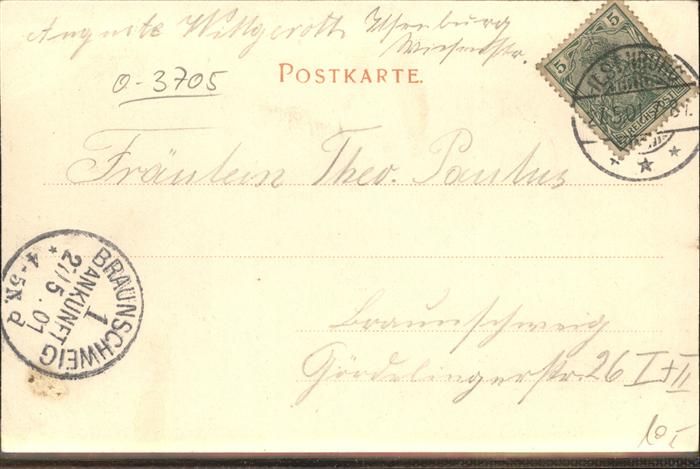 Auguste Wittgeroth Ilsenburg
Wiesenstr.
O-3705
POSTKARTE.
5
5
REICHSPOST
ILSENBURG
Fräulein Theo. Paulus
BRAUNSCHWEIG
1
ANKUNFT
27/5.01
4-5N.
d
Braunschweig
Gördelingerstr. 26 I+II
10,-